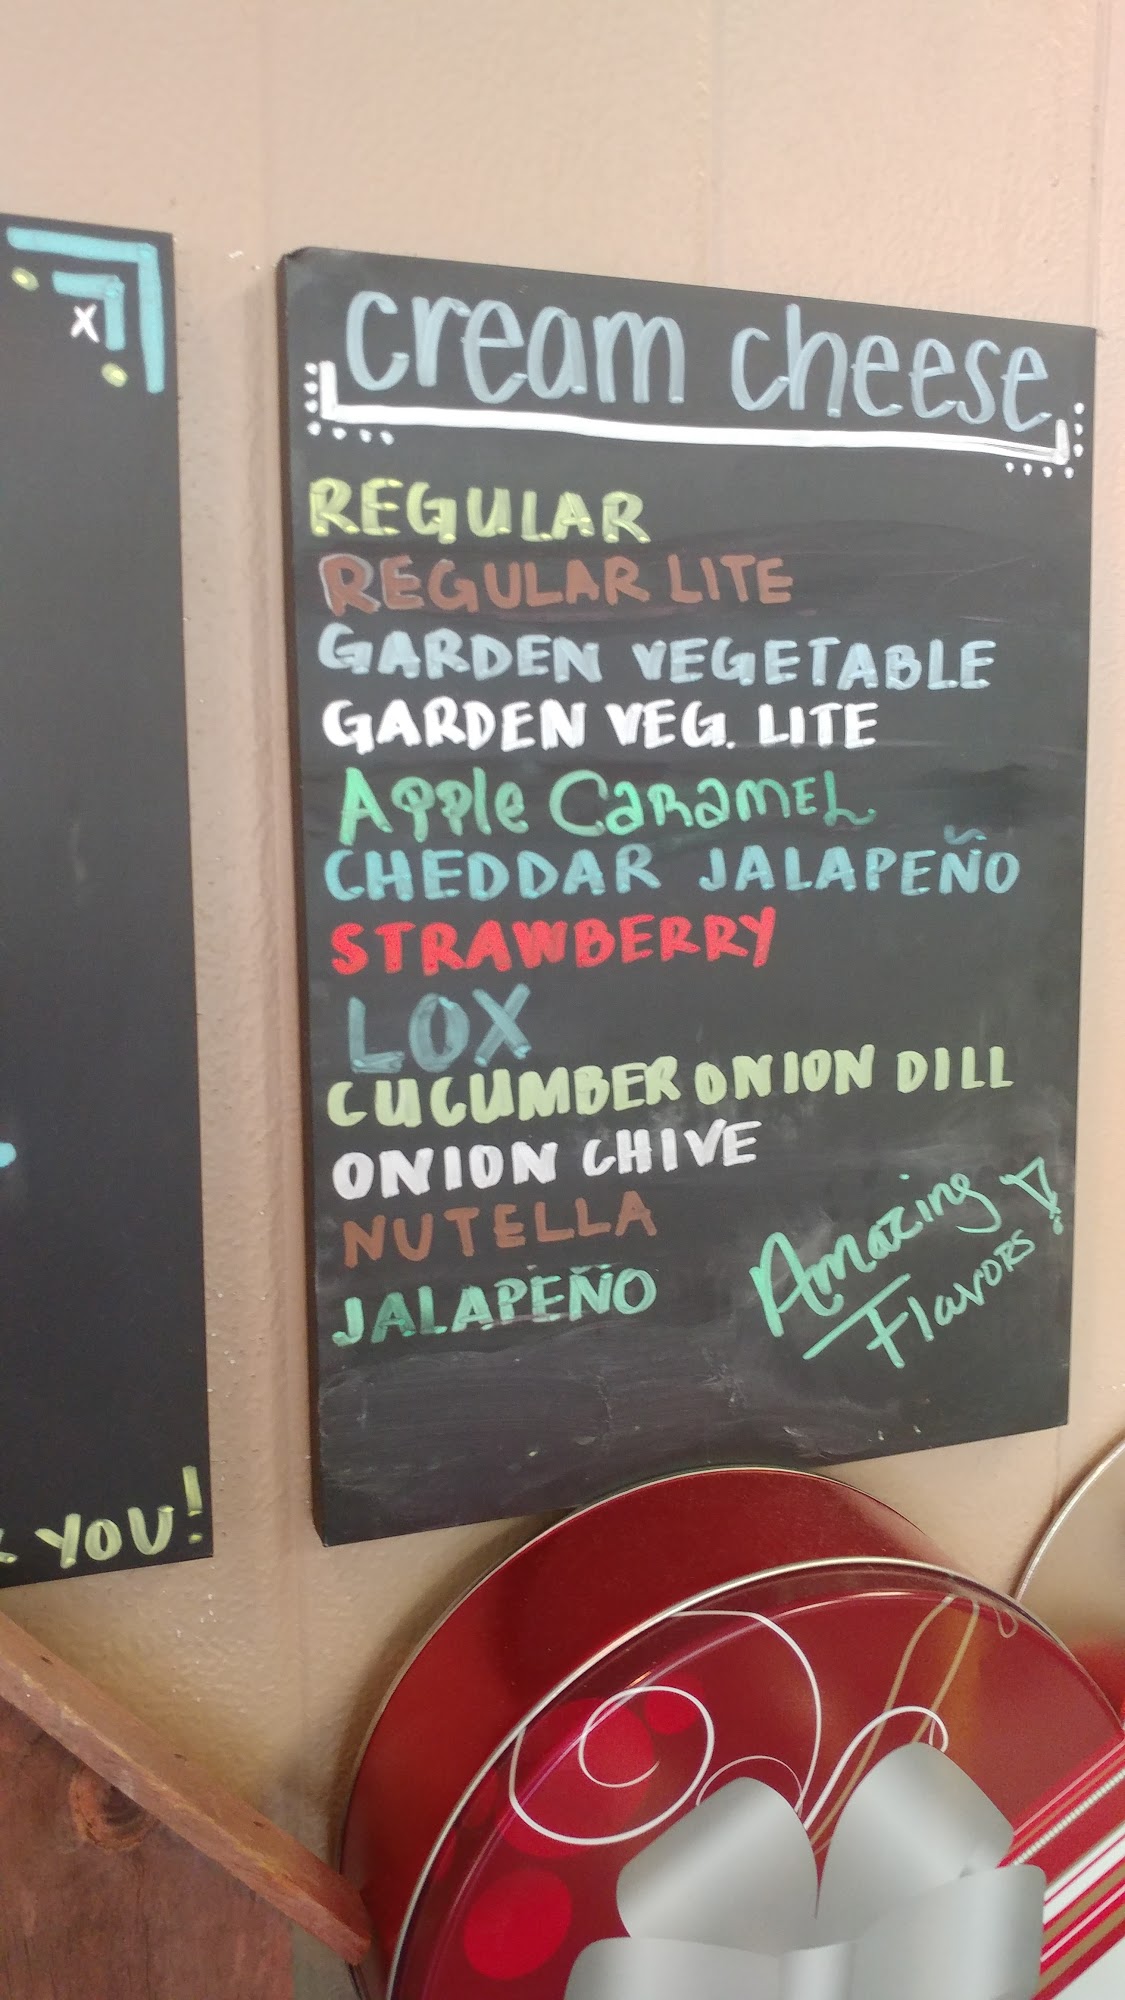 x
YOU!
cream cheese
REGULAR
REGULAR LITE
GARDEN VEGETABLE
GARDEN VEG. LITE
Apple CaRamEL
CHEDDAR JALAPEÑO
STRAWBERRY
LOX
CUCUMBER ONION DILL
ONION CHIVE
NUTELLA
JALAPEÑO
Amazing
Flavors!